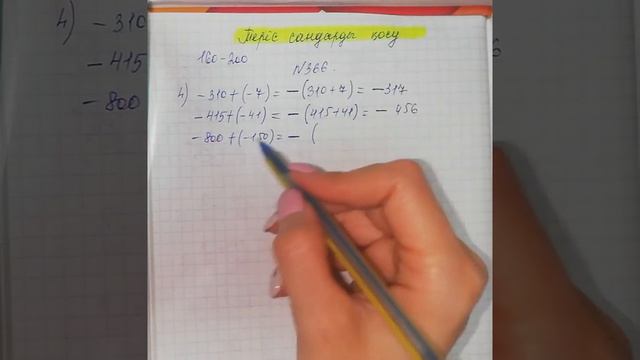 Теріс сандарды қосу
160-200
N366.
4) -310+(-7) = -(310+7) = -317
-415+(-41) = -(415+41) = -456
-800+(-150) = - (
4) -310
-415
-800